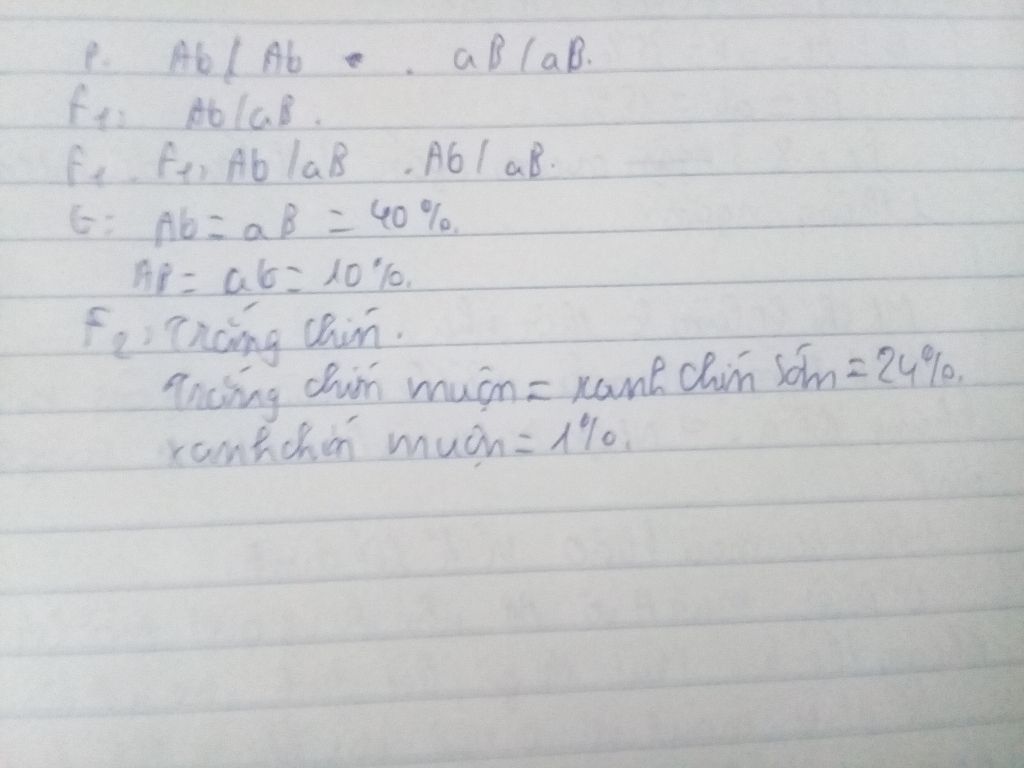 P. Ab/Ab . aB/aB.
F1: Ab/aB.
F1. F1, Ab/aB . Ab/aB.
G: Ab = aB = 40%.
AB = ab = 10%.
F2: Trắng chín.
Trắng chín muộn = xanh chín sớm = 24%.
xanh chín muộn = 1%.